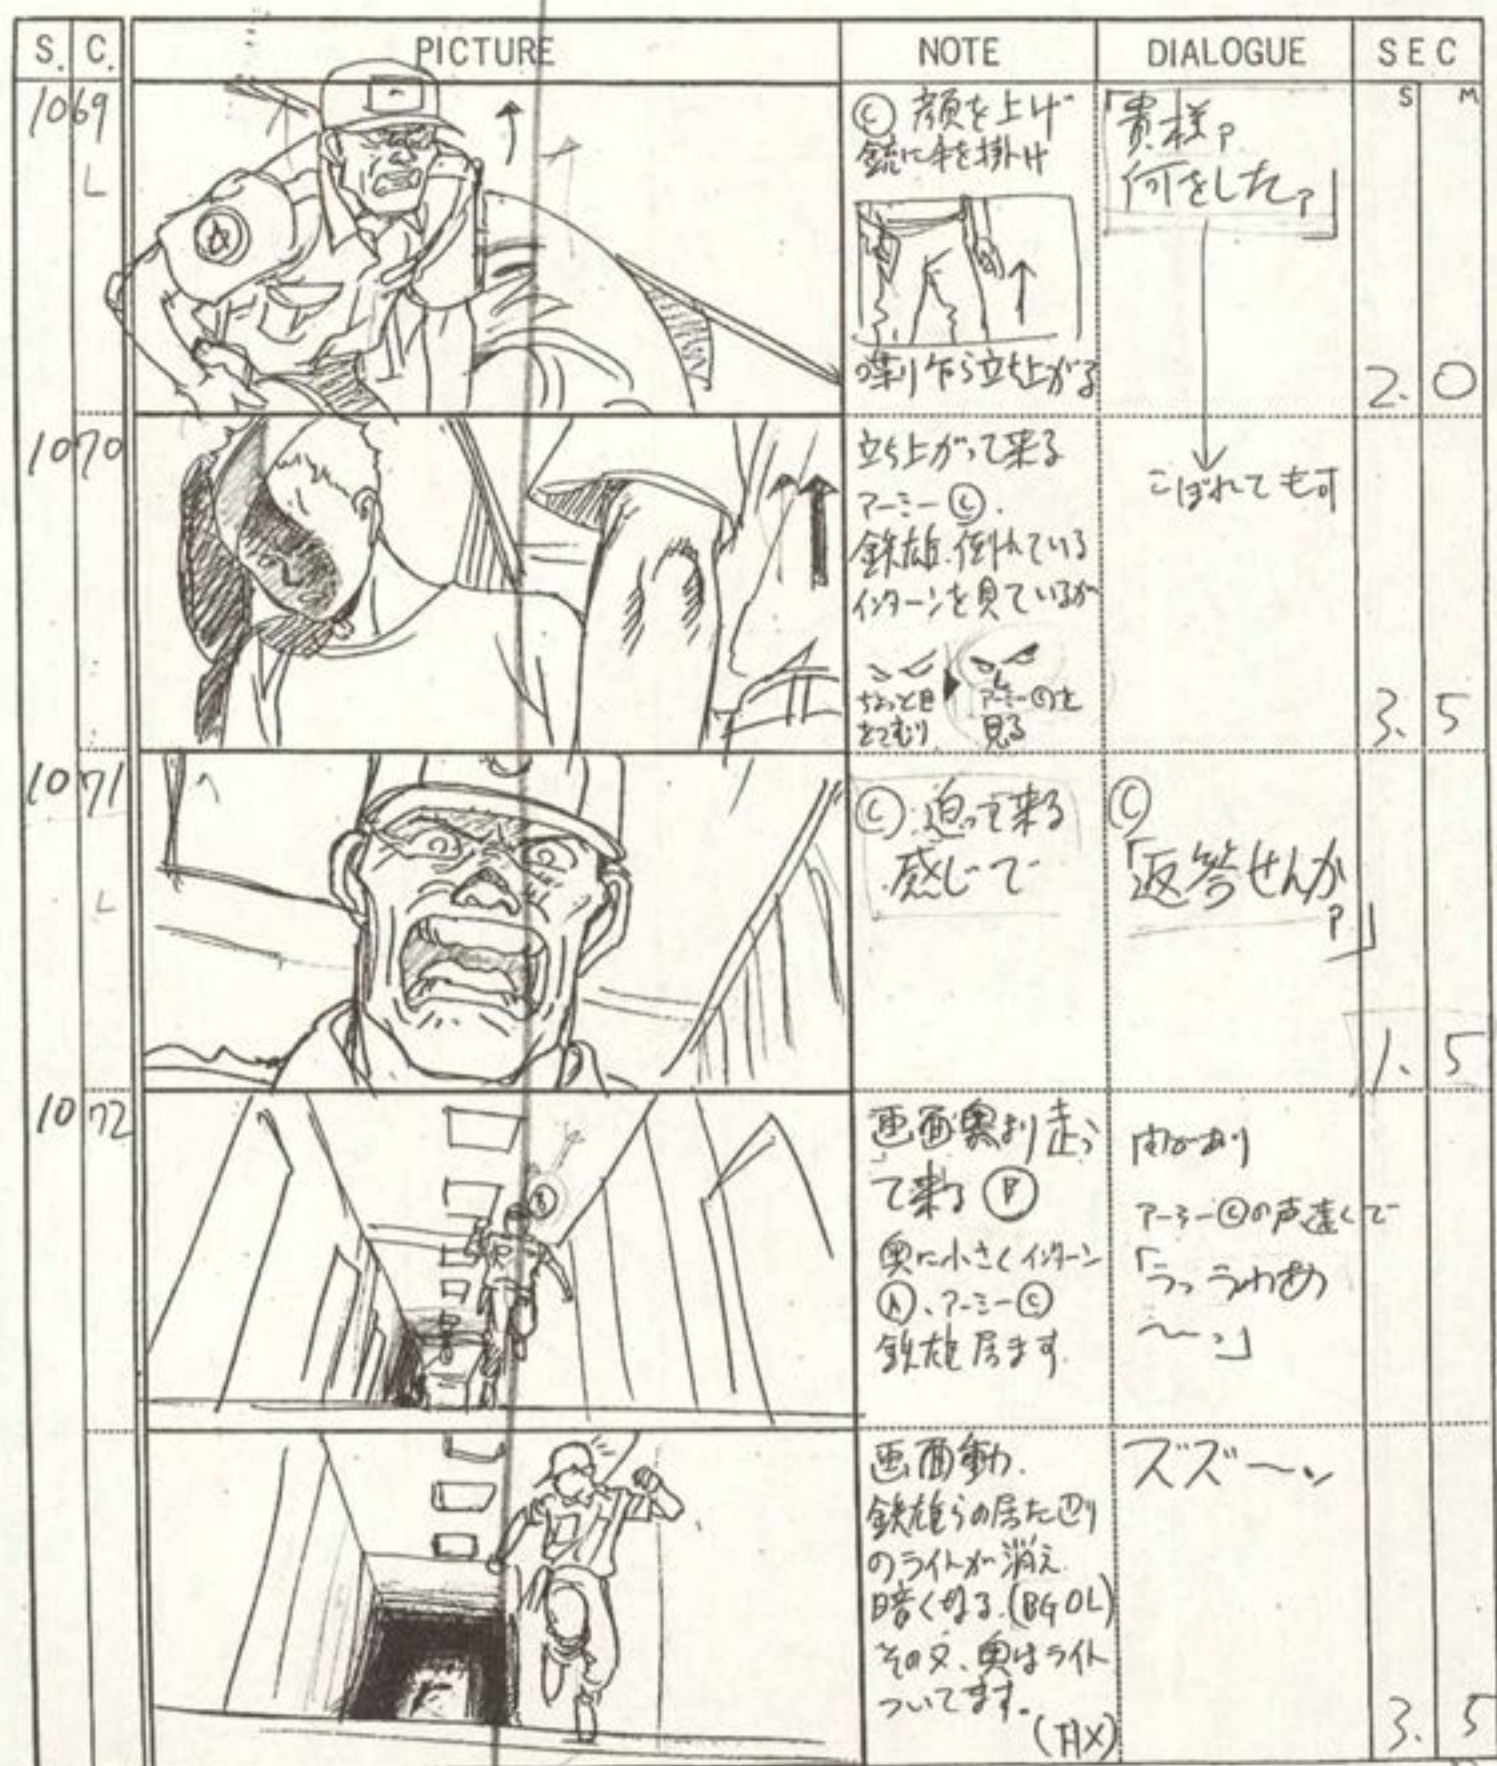 S. C. PICTURE NOTE DIALOGUE SEC
S M
1069
L
Ⓒ 顔を上げ
銃に手を掛け
喋り乍ら立ち上がる
「貴様ァ
何をしたァ」
2. 0
1070
立ち上がって来る
アーミーⒸ.
鉄雄.倒れている
インターンを見ているが
ちょっと目
をつむり
アーミーⒸを
見る
こぼれてもす
3. 5
1071
L
Ⓒ 迫って来る
感じで
Ⓒ
「返答せんか
ァ」
1. 5
1072
画面奥より走っ
て来るⒷ
奥に小さくインターン
Ⓐ、アーミーⒸ
鉄雄居ます.
間があり
アーミーⒸの声遠くで
「うっうわあ
〜っ」
Ⓑ
画面動.
鉄雄らの居た辺り
のライトが消え.
暗くなる.(BG OL)
その又、奥はライト
ついてます.
ズズ〜ン
3. 5